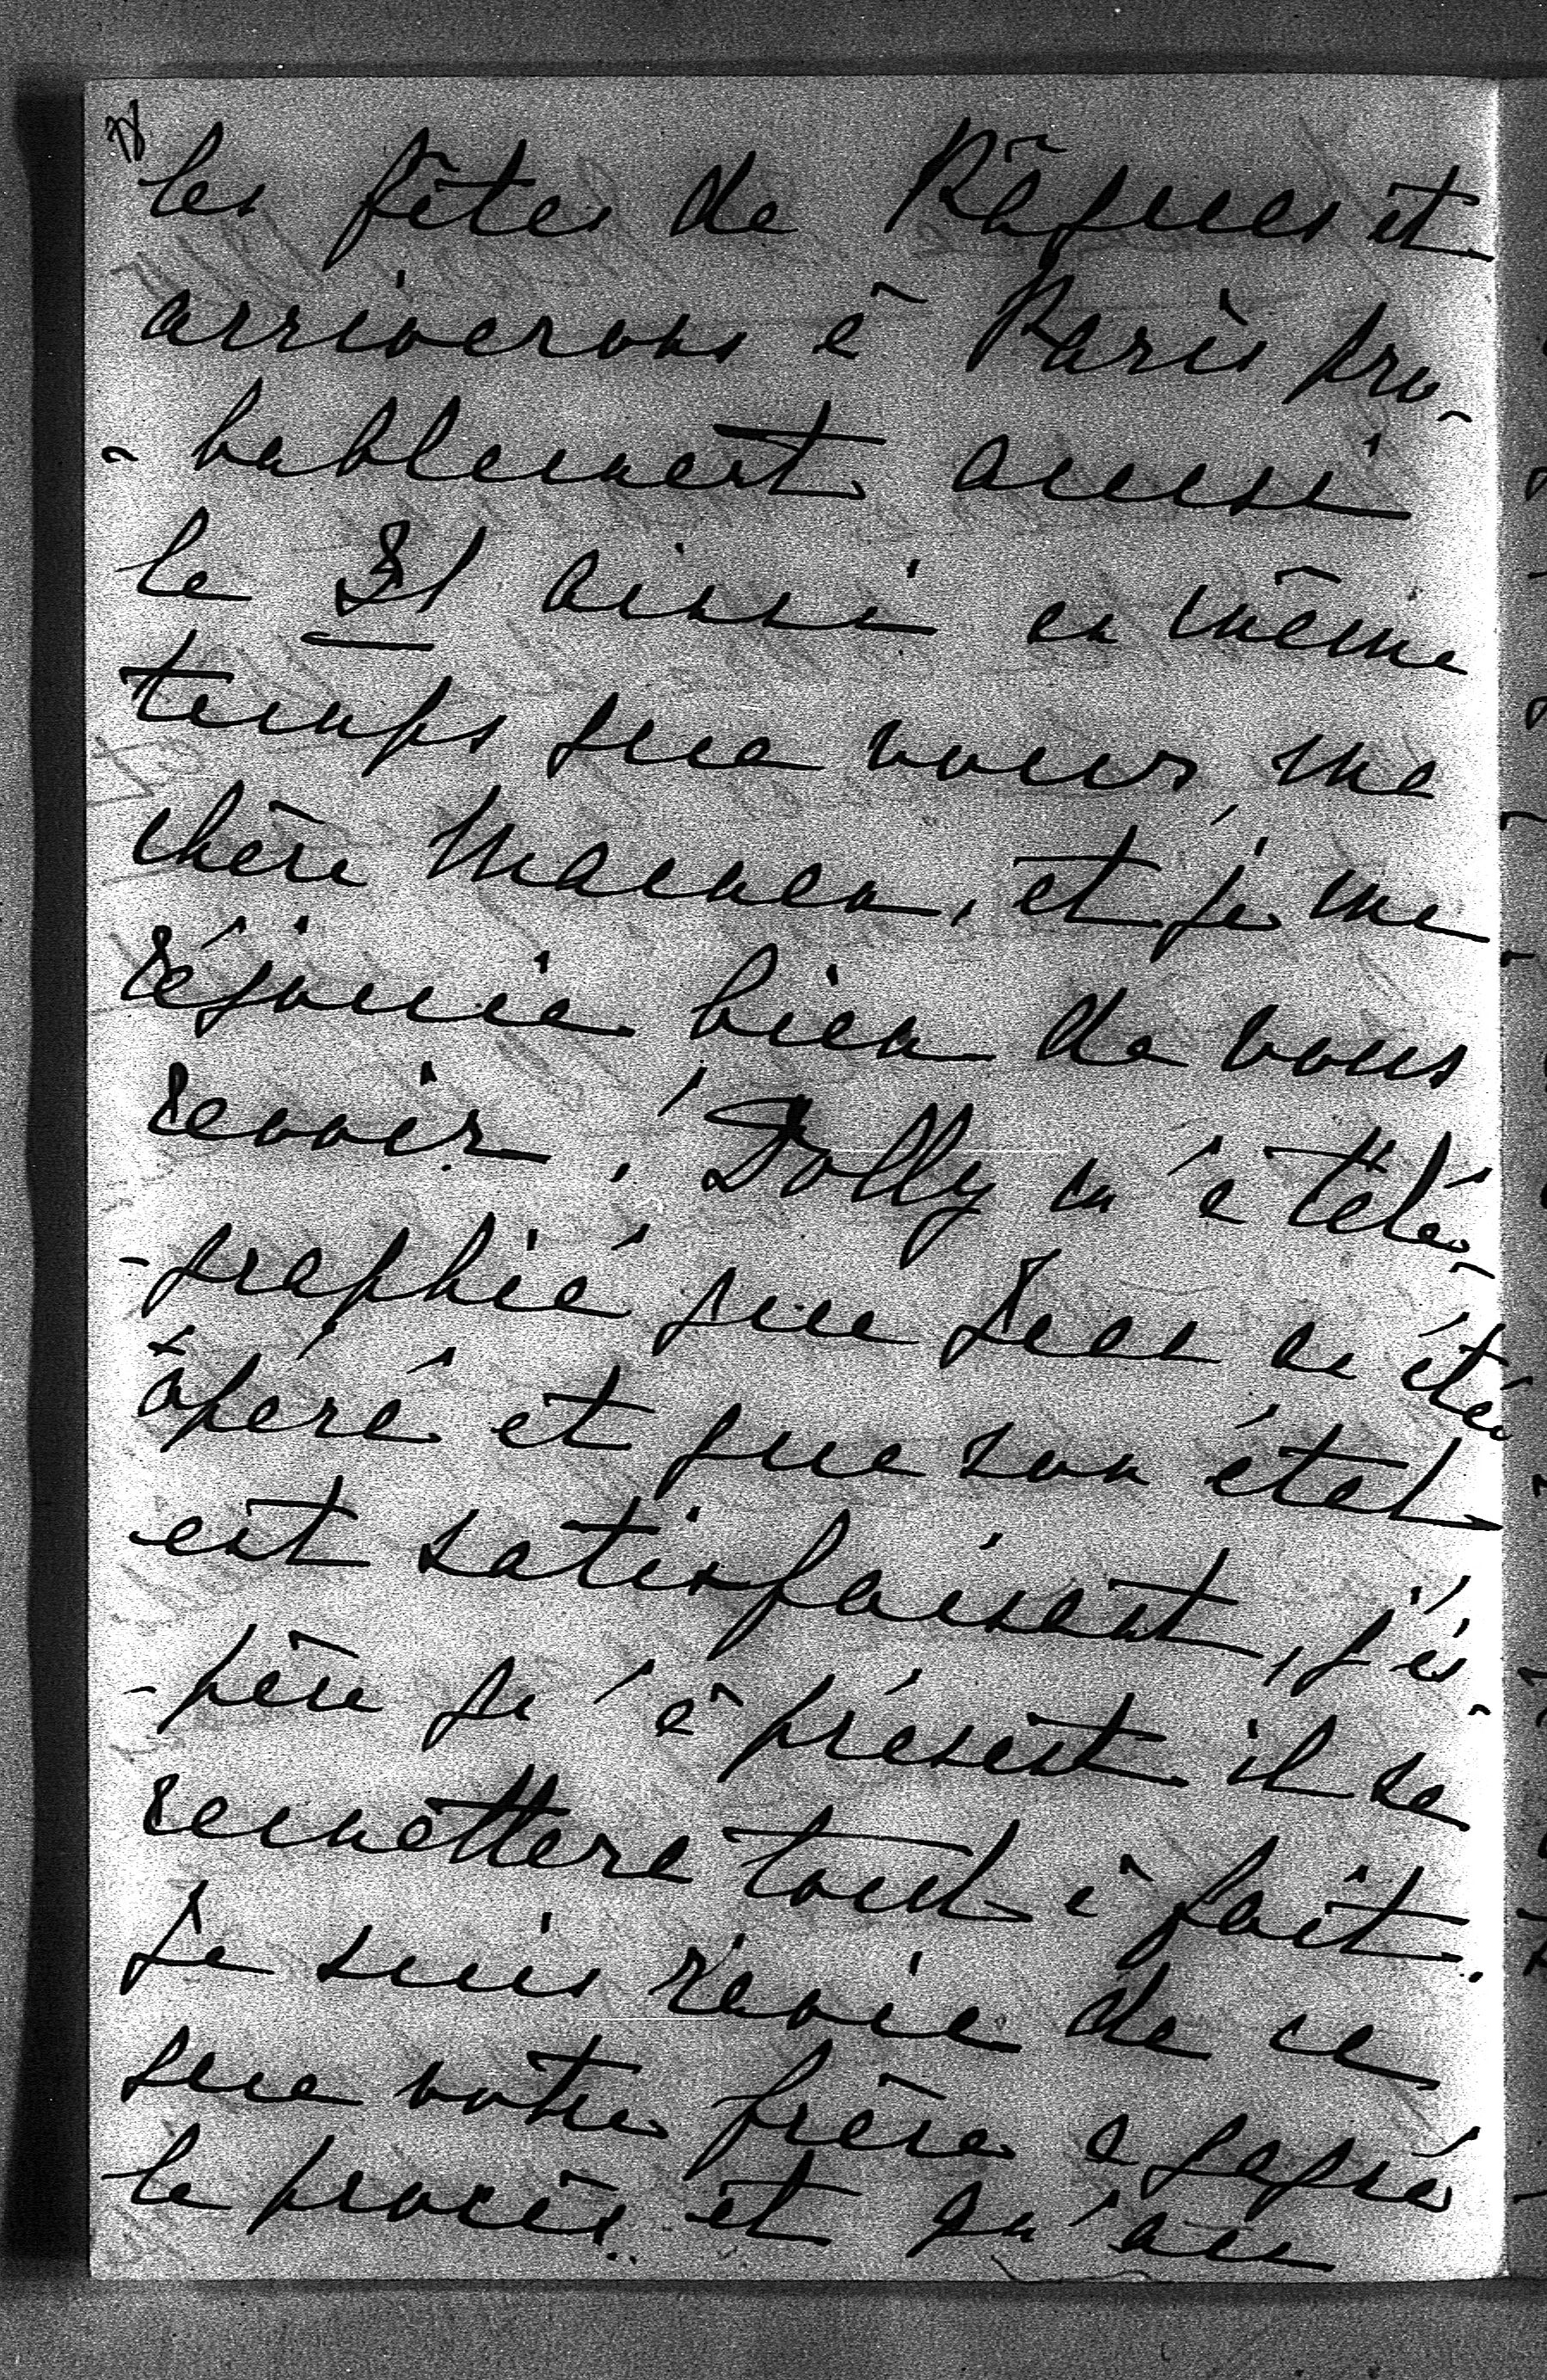 les fêtes de Pâques et
arriverons à Paris pro-
-bablement aussi
le 21 ainsi en même
temps que vous, ma
chère Maman, et je me
réjouis bien de vous
revoir. Dolly m'a télé-
-graphié que Jean a été
opéré et que son état
est satisfaisant, j'es-
-père qu'à présent il se
remettera tout à fait.
Je suis ravie de ce
que votre frère a gagné
le procès et qu'on